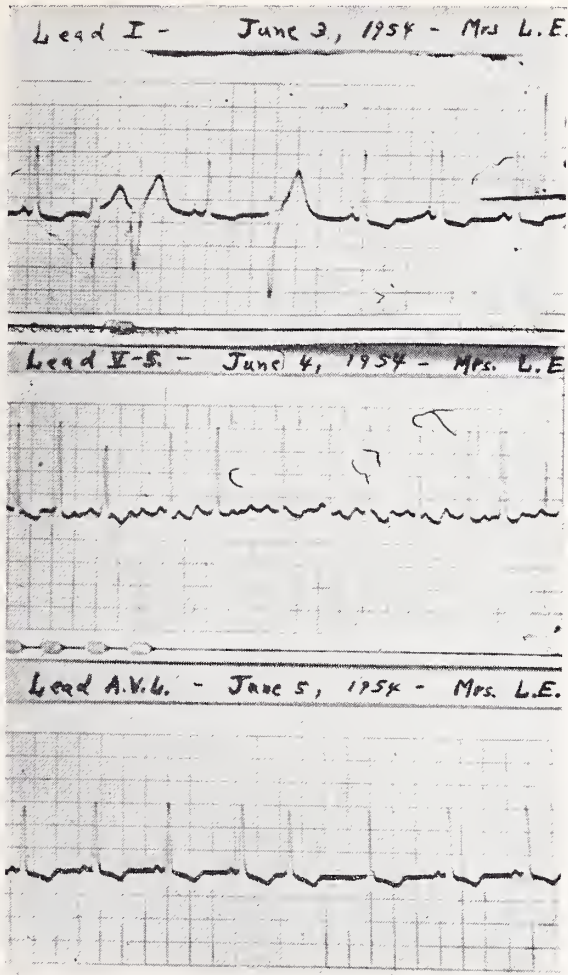 Lead I - June 3, 1954 - Mrs L.E.
Lead V-5. - June 4, 1954 - Mrs. L.E
Lead A.V.L. - June 5, 1954 - Mrs. L.E.